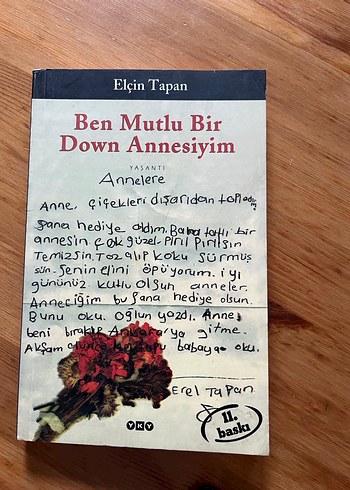 Elçin Tapan
Ben Mutlu Bir
Down Annesiyim
YAŞANTI
Annelere
Anne, çiçekleri dışarıdan topladım
sana hediye aldım. Bana tatlı bir
annesin çok güzel. Pırıl pırılsın
Temizsin. Toz alıp koku sürmüş
sün. Senin elini öpüyorum. iyi
gününüz kutlu olsun anneler.
Anneciğim bu sana hediye olsun.
Bunu oku. Oğlun yazdı. Anne,
beni bırakıp Ankara'ya gitme.
Akşam olunca babaya oku.
Erel Tapan
YKY
11.
baskı